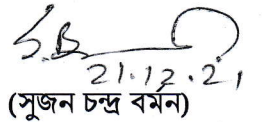 21.12.21
(সুজন চন্দ্র বর্মন)